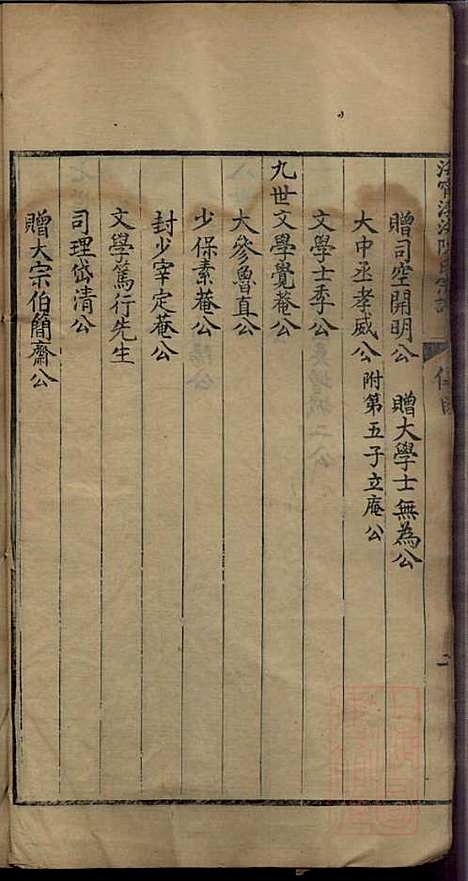 贈司空開明公 贈大學士無為公
大中丞孝威公 附第五子立庵公
文學士季公
九世文學覺菴公
大參魯直公
少保素菴公
封少宰定菴公
文學篤行先生
司理岱清公
贈大宗伯簡齋公